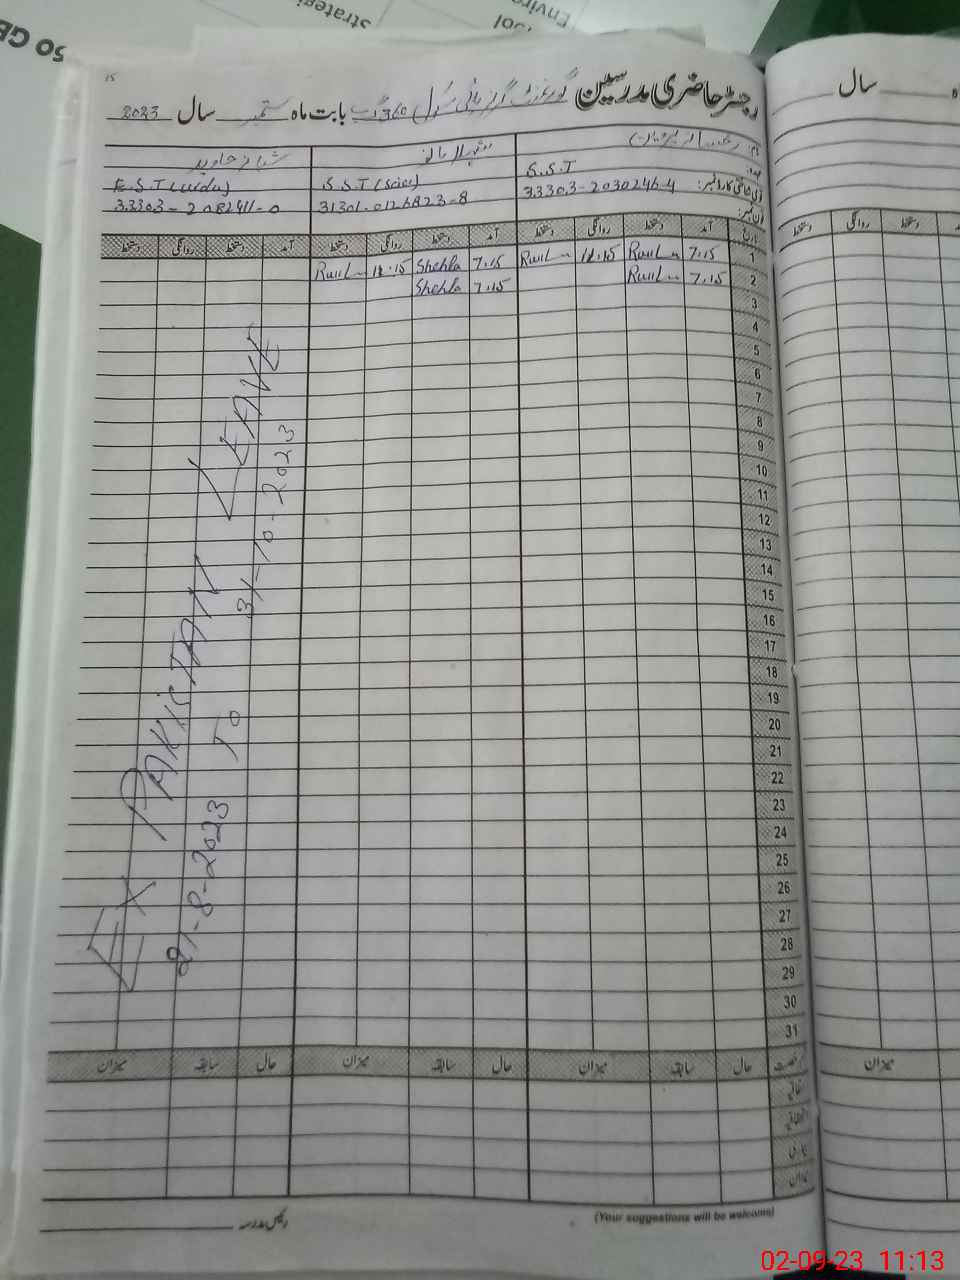 50 GB
Strategi
tool
Enviro
15
رجسٹر حاضری مدرسین گورنمنٹ گرلز ہائی سکول 360 گ ب بابت ماہ ستمبر سال 2023
سال
نام:
شہلا
شہناز جاوید
عہدہ:
S.S.T
S.S.T (Scien)
E.S.T (Urdu)
قومی شناختی کارڈ نمبر: 33303-2030246-4
31301-0126823-8
33303-2082411-0
فون نمبر:
تاریخ آمد دستخط روانگی دستخط آمد دستخط روانگی دستخط آمد دستخط روانگی دستخط
دستخط روانگی دستخط
1 7.15 11.15 7.15 Shehla 11.15
2 7.15 7.15 Shehla
3
4
5
6
7
8
9
10
11
12
13
14
15
16
17
18
19
20
21
22
23
24
25
26
27
28
29
30
31
EX PAKISTAN LEAVE
21-8-2023 To 31-10-2023
رخصت حال سابقہ میزان حال سابقہ میزان حال سابقہ میزان
میزان
اتفاقیہ
میزان
(Your suggestions will be welcome)
رئیس مدرسہ
02-09-23 11:13